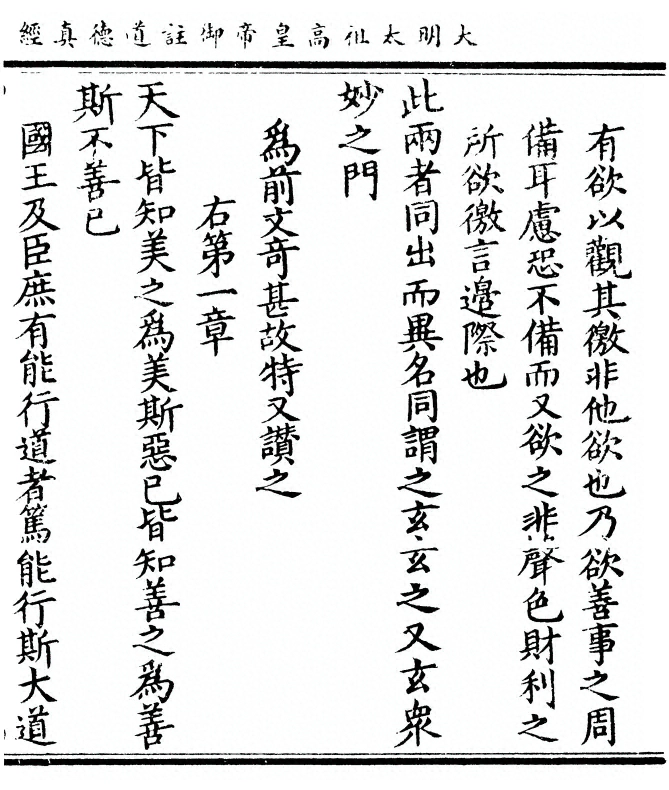 大明太祖高皇帝御註道德真經
有欲以觀其徼非他欲也乃欲善事之周
備耳慮恐不備而又欲之非聲色財利之
所欲徼言邊際也
此兩者同出而異名同謂之玄玄之又玄衆
妙之門
爲前文奇甚故特又讚之
右第一章
天下皆知美之爲美斯惡已皆知善之爲善
斯不善已
國王及臣庶有能行道者篤能行斯大道